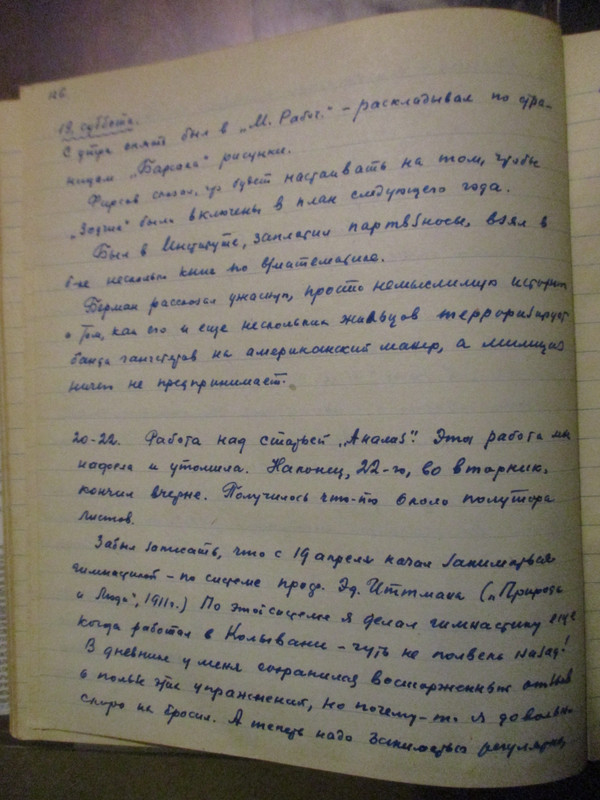 126
18, суббота.
С утра опять был в „М. Рабоч.“ – раскладывал по стра-
ницам „Барсака“ рисунки.
Фирсов сказал, что будет настаивать на том, чтобы
„Зодчие“ были включены в план следующего года.
Был в Институте, заплатил партвзносы, взял в
б-ке несколько книг по математике.
Берман рассказал ужасную, просто немыслимую историю
о том, как его и еще нескольких жильцов терроризирует
банда гангстеров на американский манер, а милиция
ничего не предпринимает.
20-22. Работа над статьей „Анализ“. Эта работа мне
надоела и утомила. Наконец, 22-го, во вторник,
кончил вчерне. Получилось что-то около полутора
листов.
Забыл записать, что с 19 апреля начал заниматься
гимнастикой – по системе проф. Эд. Иттмана („Природа
и Люди“, 1911 г.) По этой системе я делал гимнастику еще
когда работал в Колывани – чуть не полвека назад!
В дневнике у меня сохранился восторженный отзыв
о пользе этих упражнений, но почему-то я довольно
скоро их бросил. А теперь надо заниматься регулярно,